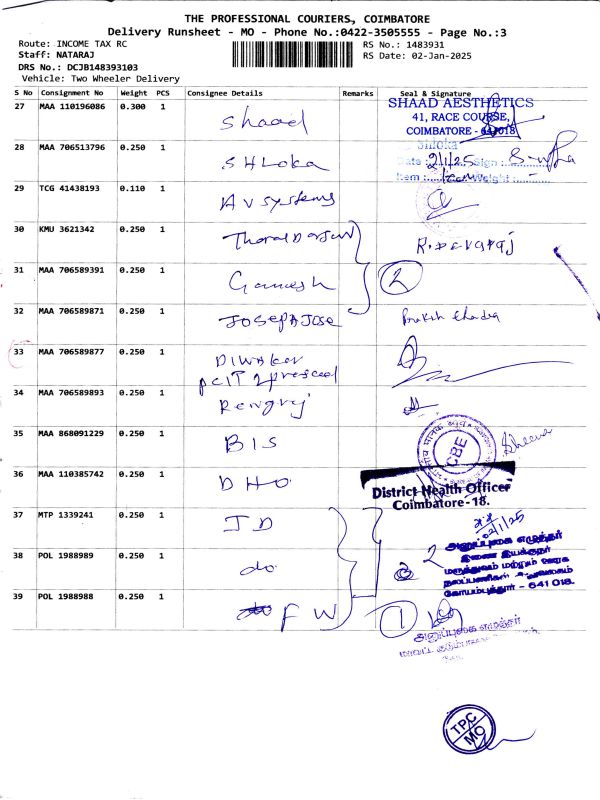 THE PROFESSIONAL COURIERS, COIMBATORE
Delivery Runsheet - MO - Phone No.:0422-3505555 - Page No.:3
Route: INCOME TAX RC
RS No.: 1483931
Staff: NATARAJ
RS Date: 02-Jan-2025
DRS No.: DCJB148393103
Vehicle: Two Wheeler Delivery
S No Consignment No Weight PCS Consignee Details Remarks Seal & Signature
27 MAA 110196086 0.300 1 Shaad
SHAAD AESTHETICS
41, RACE COURSE,
COIMBATORE - 641018
28 MAA 706513796 0.250 1 SHLOKA
Shloka
Date : 2/1/25 Sign :
Item : Weight :
29 TCG 41438193 0.110 1 AV Systems
30 KMU 3621342 0.250 1
R. DEVARAJ
31 MAA 706589391 0.250 1 Ganesh 2
32 MAA 706589871 0.250 1 JOSEPH JOSE
33 MAA 706589877 0.250 1 DIWAKER
34 MAA 706589893 0.250 1
35 MAA 868091229 0.250 1 BIS
CBE
Sheena
36 MAA 110385742 0.250 1 DHO
District Health Officer
Coimbatore - 18.
37 MTP 1339241 0.250 1 JD
02/1/25
38 POL 1988989 0.250 1 do 2
அனுப்புகை எழுத்தர்
இணை இயக்குநர்
மருத்துவம் மற்றும் ஊரக
கோயம்புத்தூர் - 641 018.
39 POL 1988988 0.250 1 FW 1
அனுப்புகை எழுத்தர்
TPC
MO